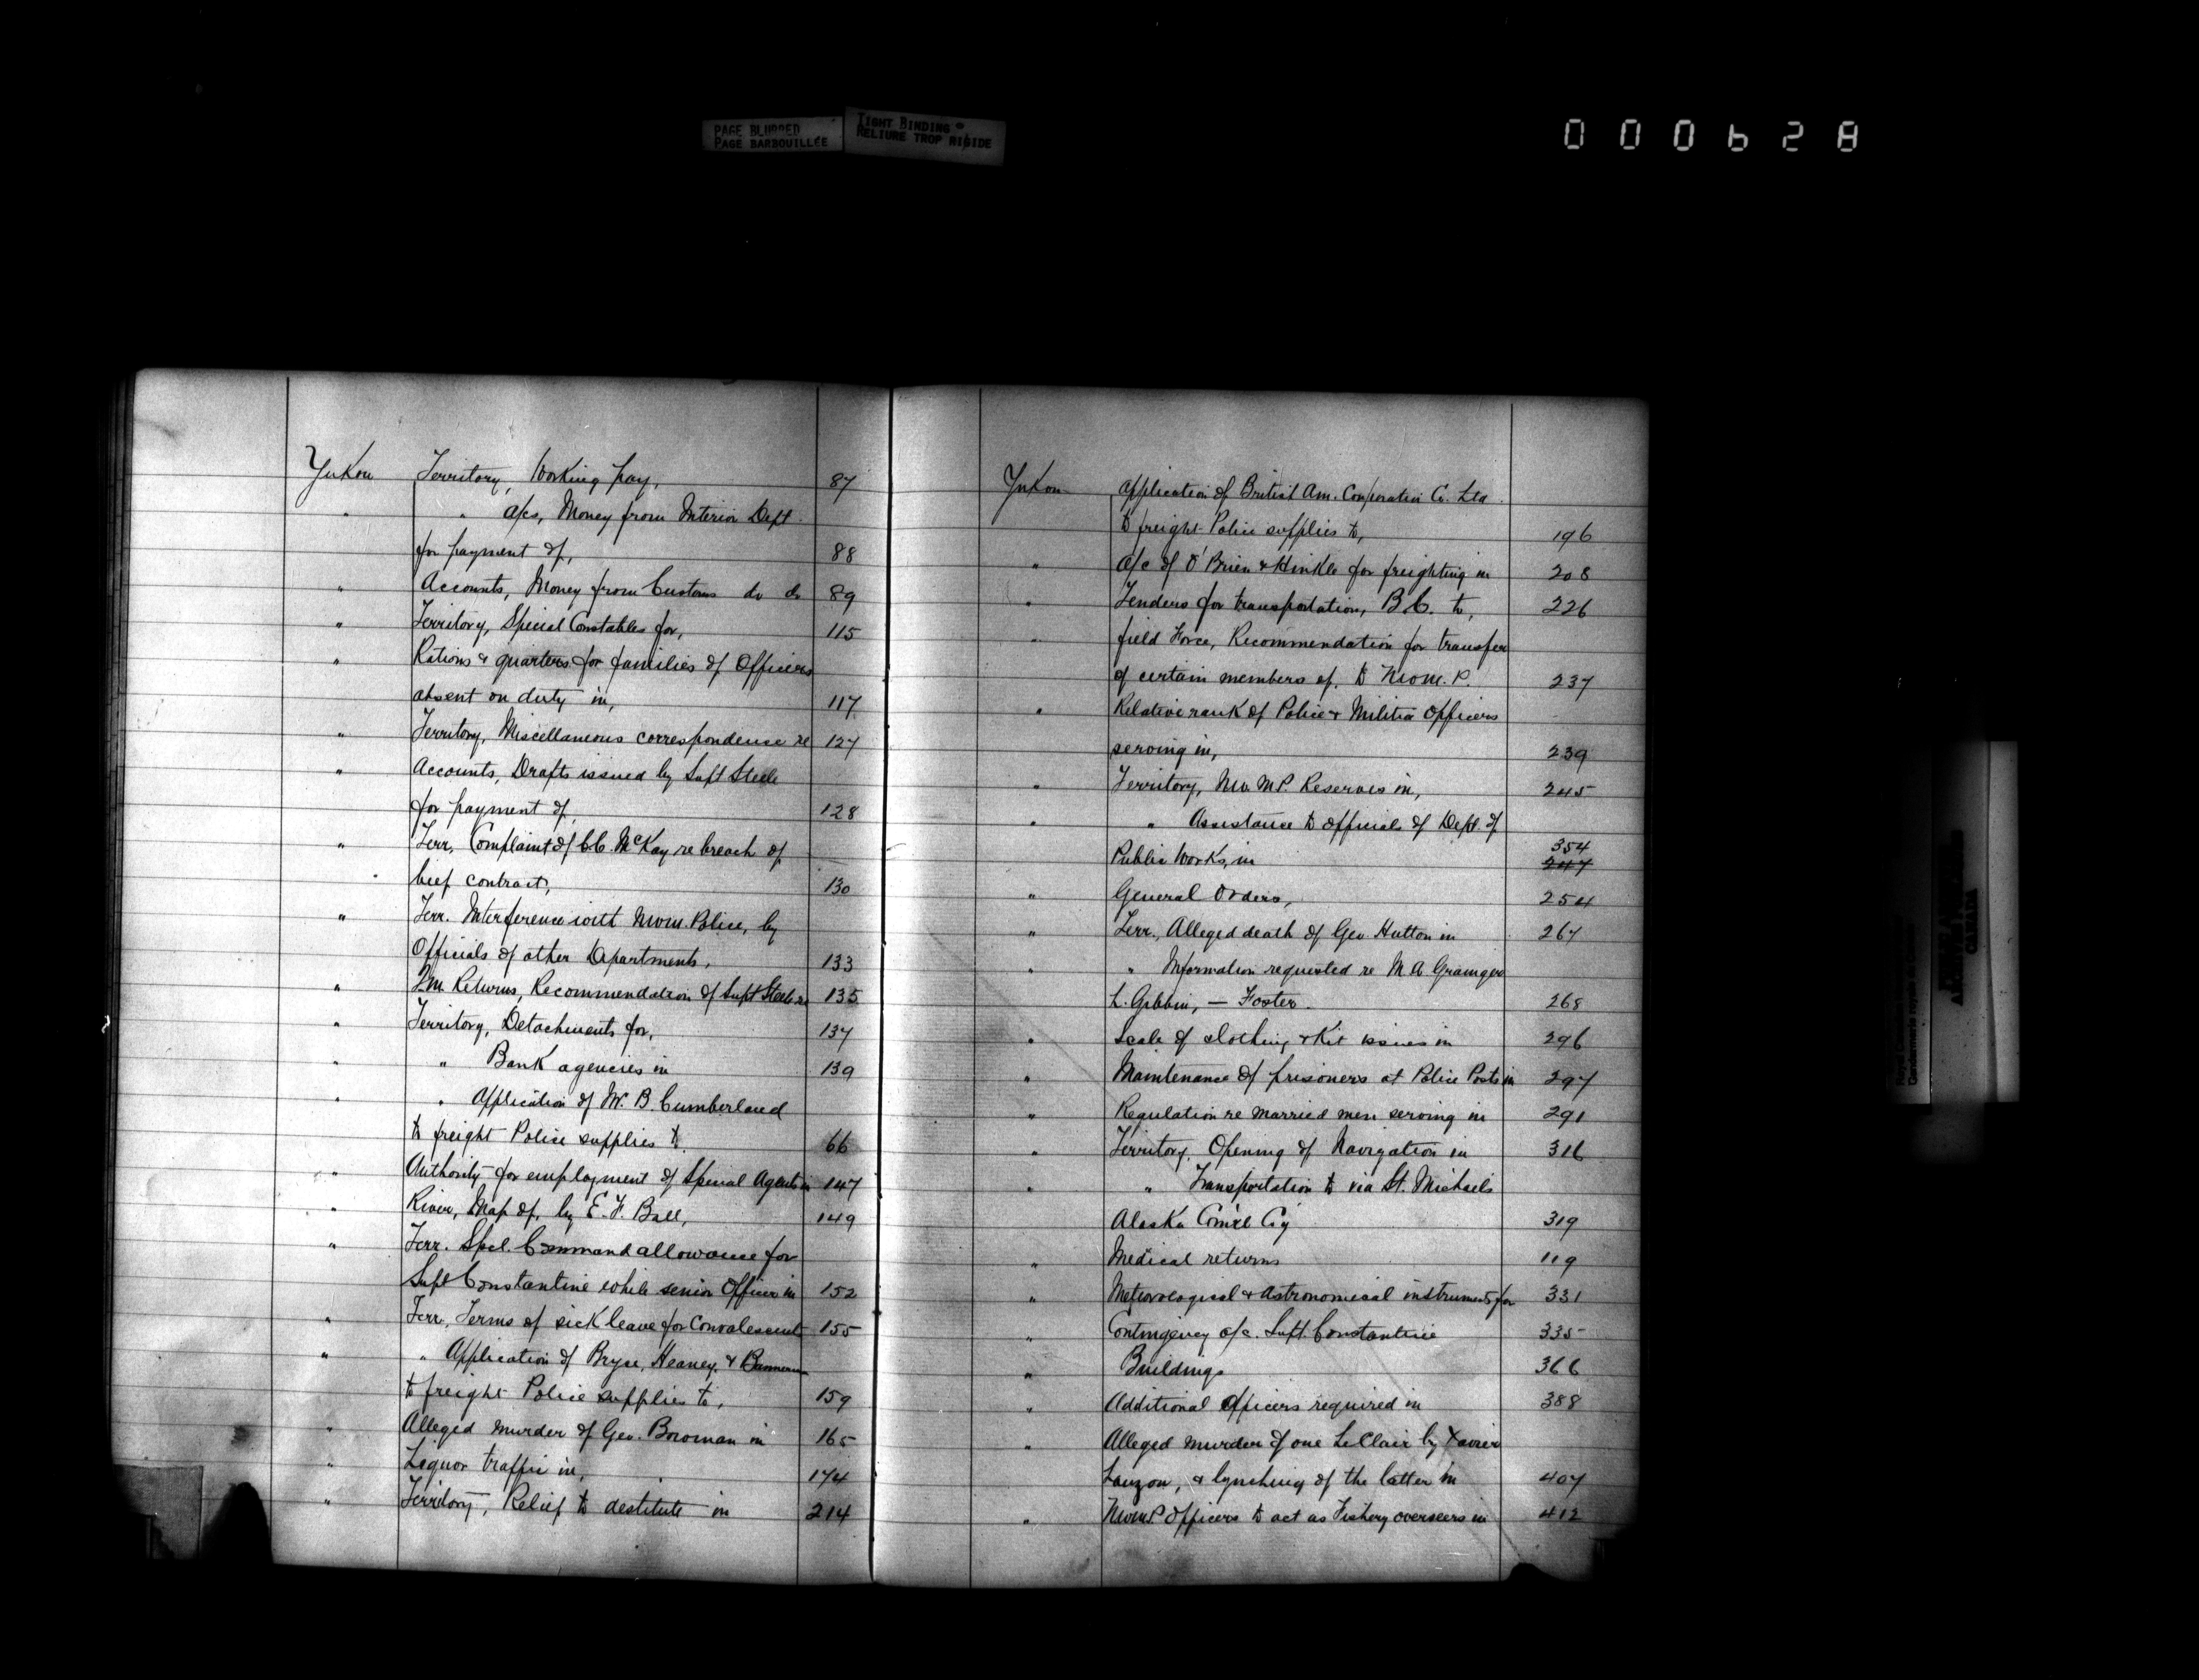 PAGE BLURRED
PAGE BARBOUILLÉE
TIGHT BINDING
RELIURE TROP RIGIDE
000628
Yukon Territory, Working pay, 87
" " a/cs, Money from Interior Dept.
for payment of, 88
" Accounts, Money from Customs do do 89
" Territory, Special Constables for, 115
" Rations & quarters for families of Officers
absent on duty in, 117
" Territory, Miscellaneous correspondence re 127
" Accounts, Drafts issued by Supt Steele
for payment of, 128
" Terr, Complaint of C.C. McKay re breach of
beef contract, 130
" Terr. Interference with N.W.M. Police, by
Officials of other Departments, 133
" Returns, Recommendation of Supt Steele re 135
" Territory, Detachments for, 137
" " Bank agencies in 139
" " Application of W. B. Cumberland
to freight Police supplies to 66
" Authority for employment of Special Agents in 147
" River, Map of, by E. F. Ball, 149
" Terr. Spcl. Command allowance for
Supt Constantine while senior Officer in 152
" Terr, Terms of sick leave for Convalescents 155
" " Application of Bryce, Heaney, &
to freight Police supplies to, 159
" Alleged murder of Geo. Bowman in 165
" Liquor traffic in, 174
" Territory, Relief to destitute in 214
Yukon Application of British Am. Corporation Co. Ltd
to freight Police supplies to, 196
" a/c of O'Brien & Hinkle for freighting in 208
" Tenders for transportation, B.C. to, 226
" field Force, Recommendation for transfer
of certain members of, to N.W.M.P. 237
" Relative rank of Police & Militia Officers
serving in, 239
" Territory, N.W.M.P. Reserves in, 245
" " Assistance to officials of Dept. of
354
Public Works, in 247
" General Orders, 254
" Terr., Alleged death of Geo. Hutton in 267
" " Information requested re M. A. Grainger
L. Gibbin, — Foster. 268
" Scale of clothing & Kit issues in 296
" Maintenance of prisoners at Police Posts in 297
" Regulation re married men serving in 291
" Territory, Opening of Navigation in 316
" " Transportation to via St. Michaels
Alaska Com'cl Co'y 319
" Medical returns 119
" Meteorological & Astronomical instruments for 331
" Contingency a/c. Supt. Constantine 335
" Buildings 366
" Additional Officers required in 388
" Alleged murder of one LeClair by Xavier
Lauzon, & lynching of the latter in 407
" N.W.M.P. Officers to act as Fishery overseers in 412
CANADA